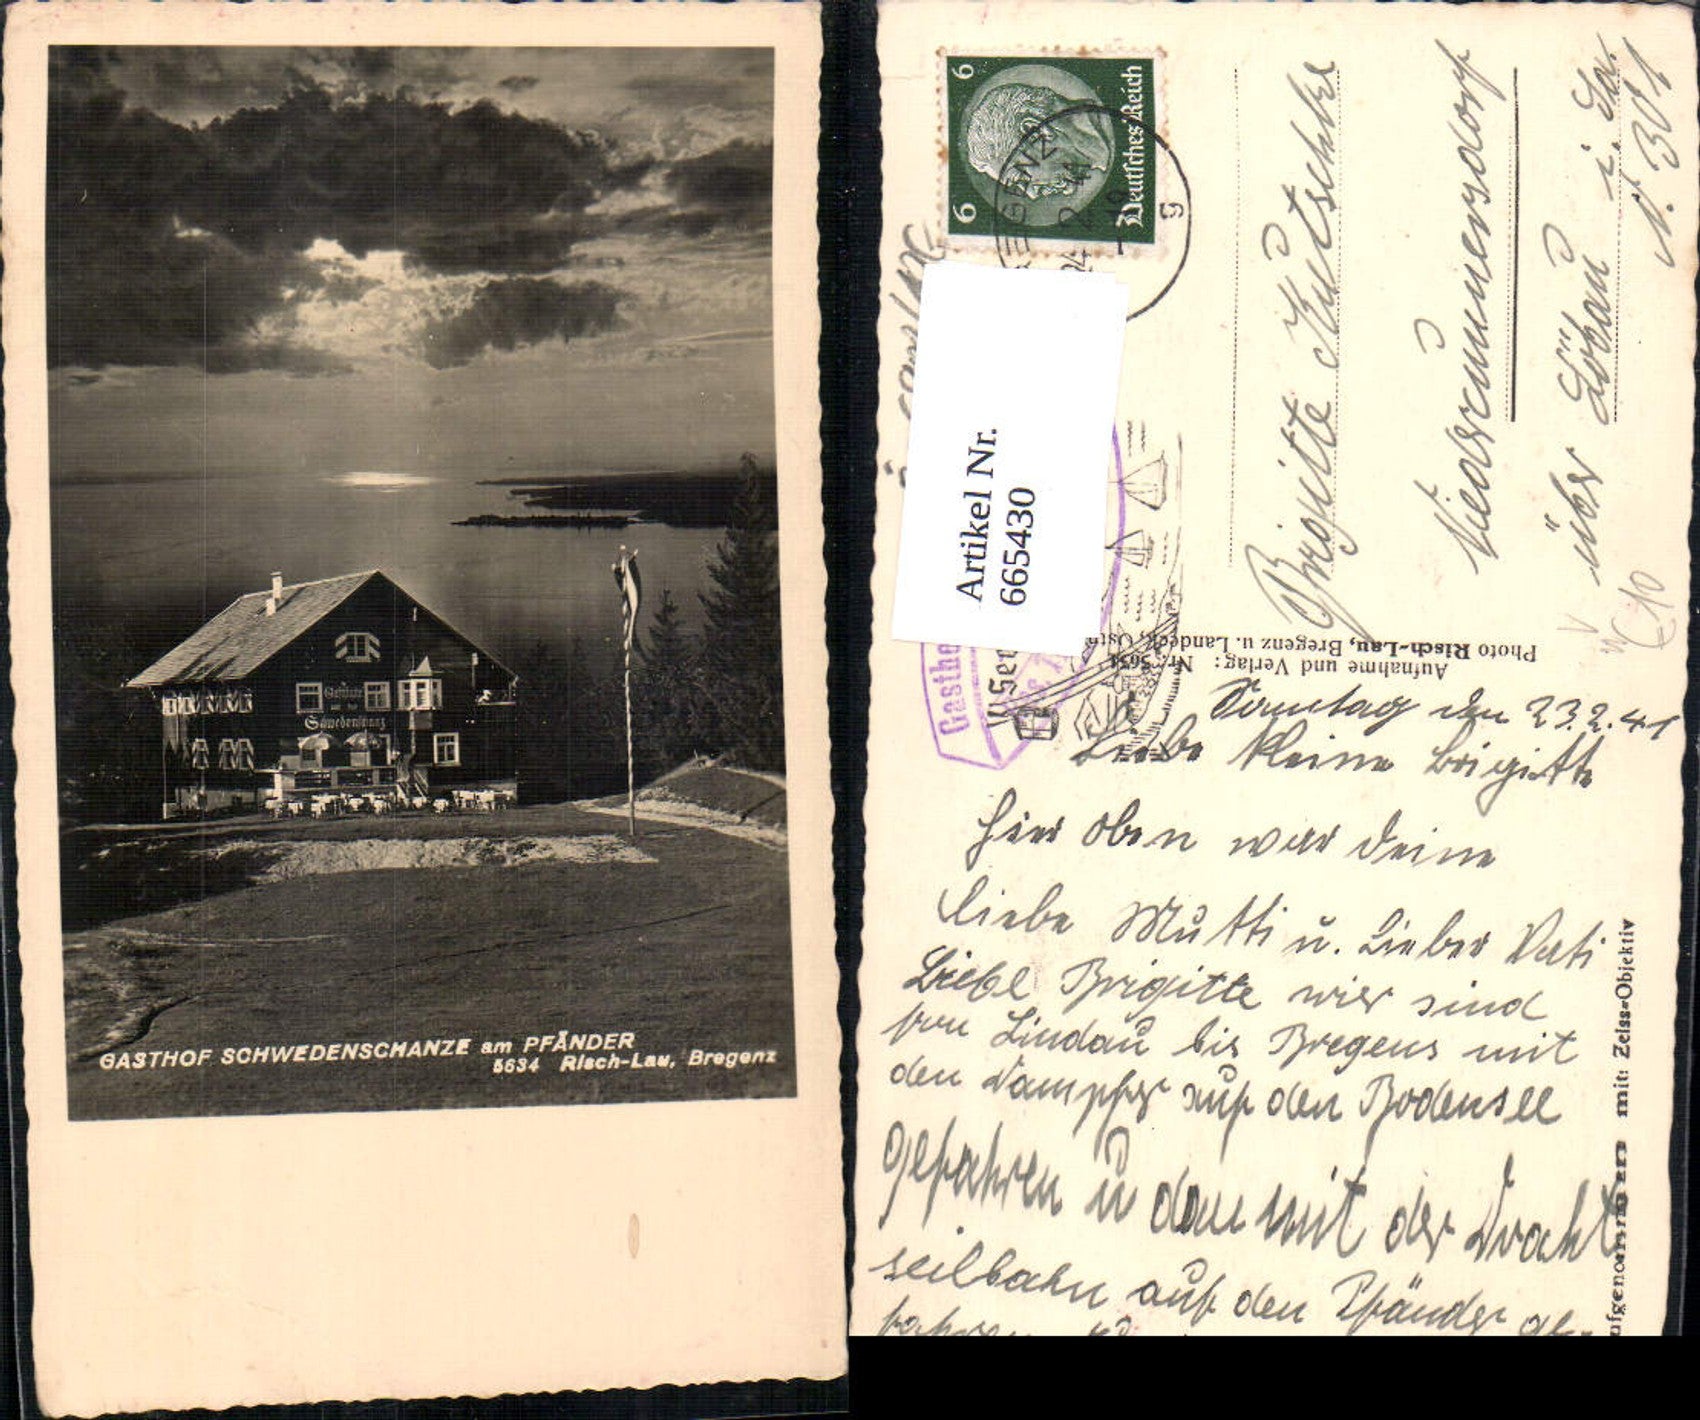 Gasthaus
Schwedenschanz
GASTHOF SCHWEDENSCHANZE am PFÄNDER
5634 Risch-Lau, Bregenz
6 6
Deutsches Reich
BREGENZ
24. 2. 41
g
Artikel Nr.
665430
Gasthof
Brigitte Kutschke
Niedercunnersdorf
über Löbau i. Sa.
N. 301
€10
Aufnahme und Verlag: Nr. 5634
Photo Risch-Lau, Bregenz u. Landeck,
Sonntag den 23.2.41
Liebe kleine Brigitte
hier oben war deine
liebe Mutti u. Lieber Vati
Liebe Brigitte wier sind
von Lindau bis Bregens mit
den Dampfer auf den Bodensee
gefahren u dan mit der Draht
seilbahn auf den Pfänder ge-
fahren
aufgenommen mit: Zeiss-Objektiv